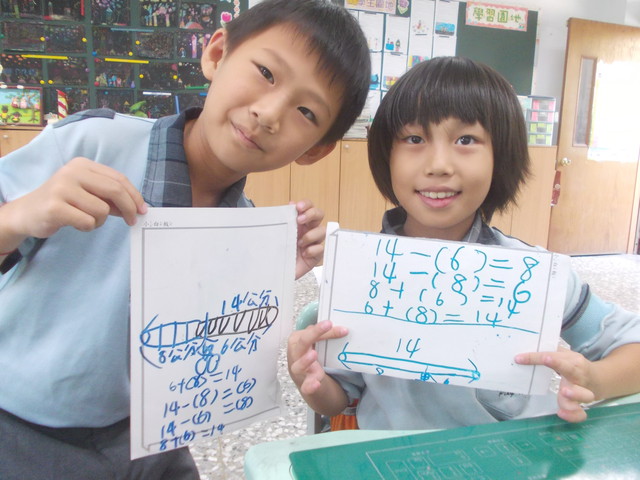 學習園地
14公分
8公分 6公分
6+(8)=14
14-(8)=(6)
14-(6)=(8)
8+(6)=14
14-(6)=8
14-(8)=6
8+(6)=14
6+(8)=14
14
8 6